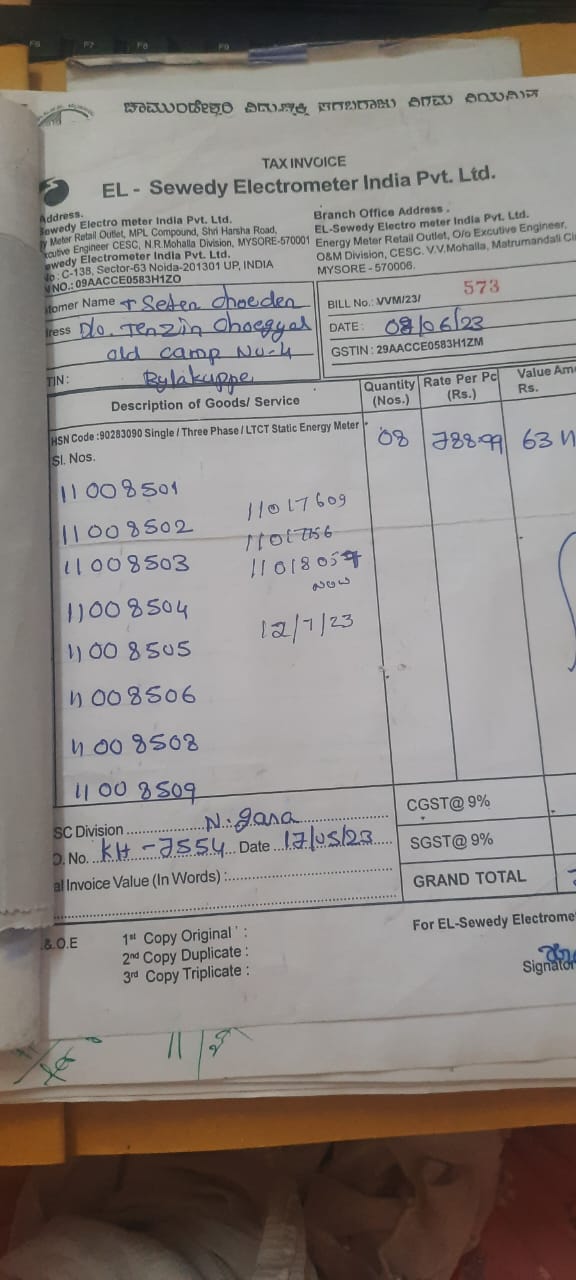 F6 F7 F8 F9
ಚಾಮುಂಡೇಶ್ವರಿ ವಿದ್ಯುಚ್ಛಕ್ತಿ ಸರಬರಾಜು ನಿಗಮ ನಿಯಮಿತ
TAX INVOICE
EL - Sewedy Electrometer India Pvt. Ltd.
Address.
ewedy Electro meter India Pvt. Ltd.
y Meter Retail Outlet, MPL Compound, Shri Harsha Road,
xcutive Engineer CESC, N.R.Mohalla Division, MYSORE-570001
ewedy Electrometer India Pvt. Ltd.
o : C-138, Sector-63 Noida-201301 UP, INDIA
NO.: 09AACCE0583H1ZO
Branch Office Address .
EL-Sewedy Electro meter India Pvt. Ltd.
Energy Meter Retail Outlet, O/o Excutive Engineer,
O&M Division, CESC. V.V.Mohalla, Matrumandali Ci
MYSORE - 570006.
tomer Name T Seten Choeden
ress D/o. Tenzin Choegyal
old camp No-4
TIN: Bylakuppe
BILL No.: VVM/23/ 573
DATE : 08/06/23
GSTIN : 29AACCE0583H1ZM
Description of Goods/ Service
Quantity (Nos.)
Rate Per Pc (Rs.)
Value Am
Rs.
HSN Code :90283090 Single / Three Phase / LTCT Static Energy Meter
08 788.99 63
Sl. Nos.
11008501
11008502 11017609
11008503
11008504
11008505 12/7/23
11008506
11008508
11008509
SC Division N. gara
O. No. KH-7554 Date 17/05/23
al Invoice Value (In Words) :
CGST@ 9%
SGST@ 9%
GRAND TOTAL
.&.O.E
1st Copy Original :
2nd Copy Duplicate :
3rd Copy Triplicate :
For EL-Sewedy Electrome
Signator